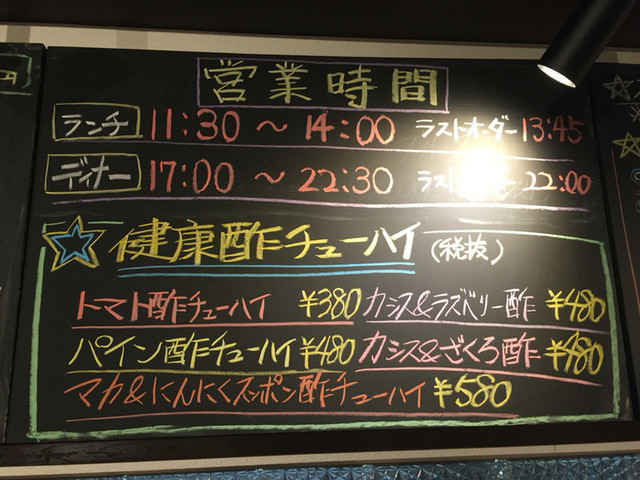 営業時間
ランチ 11:30 ～ 14:00 ラストオーダー 13:45
ディナー 17:00 ～ 22:30 ラスト 22:00
健康酢チューハイ (税抜)
トマト酢チューハイ ¥380 カシス&ラズベリー酢 ¥480
パイン酢チューハイ ¥480 カシス&ざくろ酢 ¥480
マカ&にんにくスッポン酢チューハイ ¥580
円